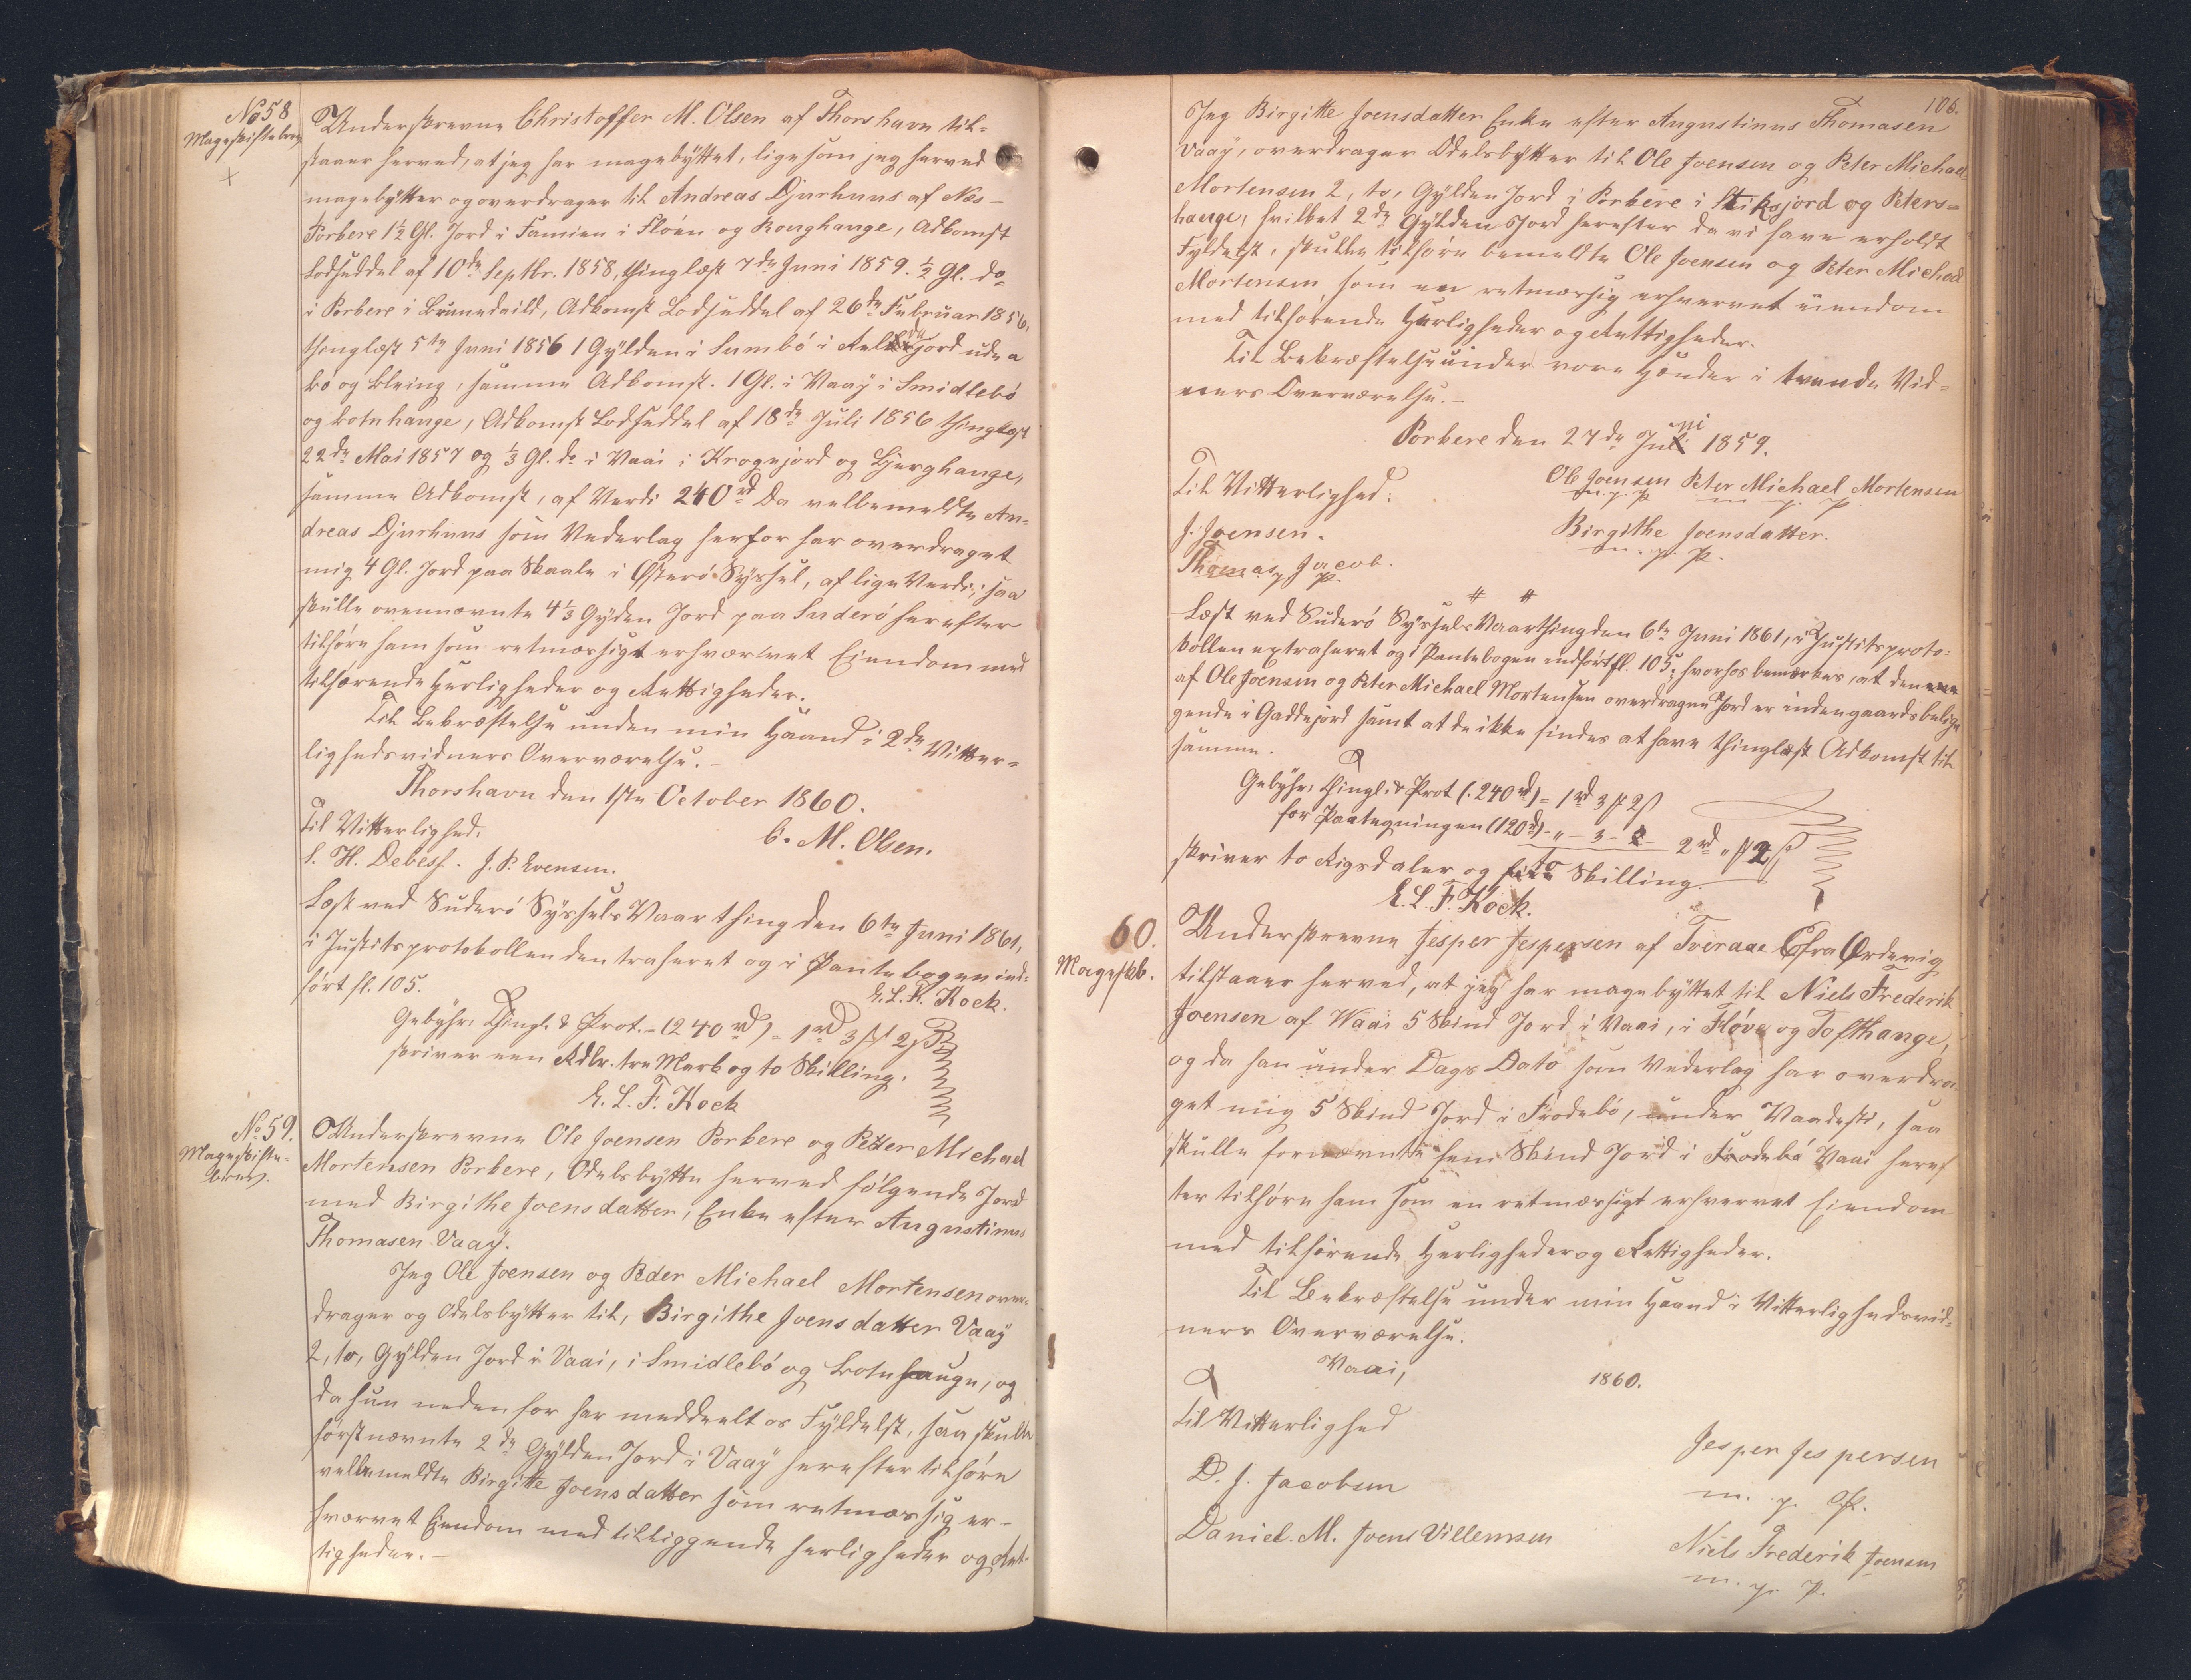 No 58
Mageskiftebrev
Underskrevne Christoffer M. Olsen af Thorshavn til-
staaer herved, at jeg har magebyttet, ligesom jeg herved
magebytter og overdrager til Andreas Djurhuus af Næs-
Porkere 1½ Gl. Jord i Famien i Flóen og Roughauge, Adkomst
Lodseddel af 10de Septbr. 1858, thinglæst 7de Juni 1859. ½ Gl. do
i Porkere i Brunedeild, Adkomst Lodseddel af 26de Februar 1856,
thinglæst 5te Juni 1856 1 Gylden i Sumbø i
bø og Kleing, samme Adkomst. 1 Gl. i Vaaÿ i Smidlebø
og Kotnhauge, Adkomst Lodseddel af 18de Juli 1856 thinglæst
22de Mai 1857 og ⅓ Gl. do i Vaai i Krogejord og Bjerghauge,
samme Adkomst, af Verdi 240rd Da velbemeldte An-
dreas Djurhuus som Vederlag herfor har overdraget
mig 4 Gl. Jord paa Skaale i Østerø Syssel, af lige Verdi; saa
skulle ovennævnte 4⅓ Gyden Jord paa Suderø herefter
tilhøre ham som retmæssigt erhvervet Eiendom med
tilhørende Herligheder og Rettigheder.
Til Bekræftelse under min Haand i 2de Vitter-
lighedsvidners Overværelse.-
Thorshavn den 1ste October 1860.
Til Vitterlighed, C. M. Olsen.
S. H. Debess. J. P. Evensen.
Læst ved Suderø Syssels Vaarthing den 6te Juni 1861,
i Justitsprotokollen extraheret og i Pantebogen ind-
ført fl. 105.
E. L. F. Kock.
Gebyhr: Thingl. & Prot.- (240 rd) = 1rd 3 # 2 ß
skriver een Rdlr. tre Mark og to Skilling.
E. L. F. Kock
No 59.
Mageskifte-
brev.
Underskrevne Ole Joensen Porkere og Petter Michael
Mortensen Porkere, Odelsbytte herved følgende Jord
med Birgithe Joensdatter, Enke efter Augustinus
Thomasen Vaaÿ.
Jeg Ole Joensen og Peder Michael Mortensen over-
drager og Odelsbytter til, Birgithe Joensdatter Vaaÿ
2, to, Gylden Jord i Vaai, i Smidlebø og Kotnhauge, og
da hun nedenfor har meddeelt os Fyldelst, saa skulle
førstnævnte 2de Gylden Jord i Vaaÿ herefter tilhøre
velbemeldte Birgitte Joensdatter som retmæssig er-
hvervet Eiendom med tilliggende herligheder og Ret-
tigheder.-
106.
Jeg Birgitte Joensdatter Enke efter Augustinus Thomasen
Vaaÿ, overdrager Odelsbytter til Ole Joensen og Peter Michael
Mortensen 2, to, Gylden Jord i Porkere i Stiksjord og Peters-
hauge, hvilket 2de Gylden Jord herefter da vi have erholdt
Fyldelst, skulle tilhøre bemeldte Ole Joensen og Peter Michael
Mortensen som en retmæssig erhvervet eiendom
med tilhørende Herligheder og Rettigheder.
Til Bekræftelse under vore Hænder i tvende Vid-
ners Overværelse.-
Porkere den 27de Juni 1859.
Til Vitterlighed: Ole Joensen Peter Michael Mortensen
m. p. P. m. p. P.
J. Joensen. Birgithe Joensdatter.
Thomas Jacob. m. p. P.
p.
Læst ved Suderø Syssels Vaarthing den 6te Juni 1861, i Justitsproto-
kollen extraheret og i Pantebogen indført fl. 105; hvorhos bemærkes, at den
af Ole Joensen og Peter Michael Mortensen overdragne Jord er indengaards belig-
gende i Gaddejord samt at de ikke findes at have thinglæst Adkomst til
samme.
Gebyhr: Thingl. & Prot (240 rd) = 1rd 3 # 2 ß
for Paategningen (120 rd) - „ - 3 - 2rd „ # 2 ß
skriver to Rigsdaler og to Skilling.
E. L. F. Kock.
60.
Mageskb.
Underskrevne Jesper Jespersen af Tveraae fra Ørdevig
tilstaaer herved, at jeg har magebyttet til Niels Frederik
Joensen af Waai 5 Skind Jord i Vaai, i Fløve og Tofthauge,
og da han under Dags Dato som Vederlag har overdra-
get mig 5 Skind Jord i Frodebø, under Vaadesti, saa
skulle fornævnte fem Skind Jord i Frodebø Vaai heref
ter tilhøre ham som en retmæssigt erhvervet Eiendom
med tilhørende Herligheder og Rettigheder.
Til Bekræftelse under min Haand i Vitterlighedsvid-
ners Overværelse.
Vaai, 1860.
Til Vitterlighed
Jesper Jespersen
D. J. Jacobsen m. p. P.
Daniel. M. Joens Villemsen Niels Frederik Joensen
m. p. P.